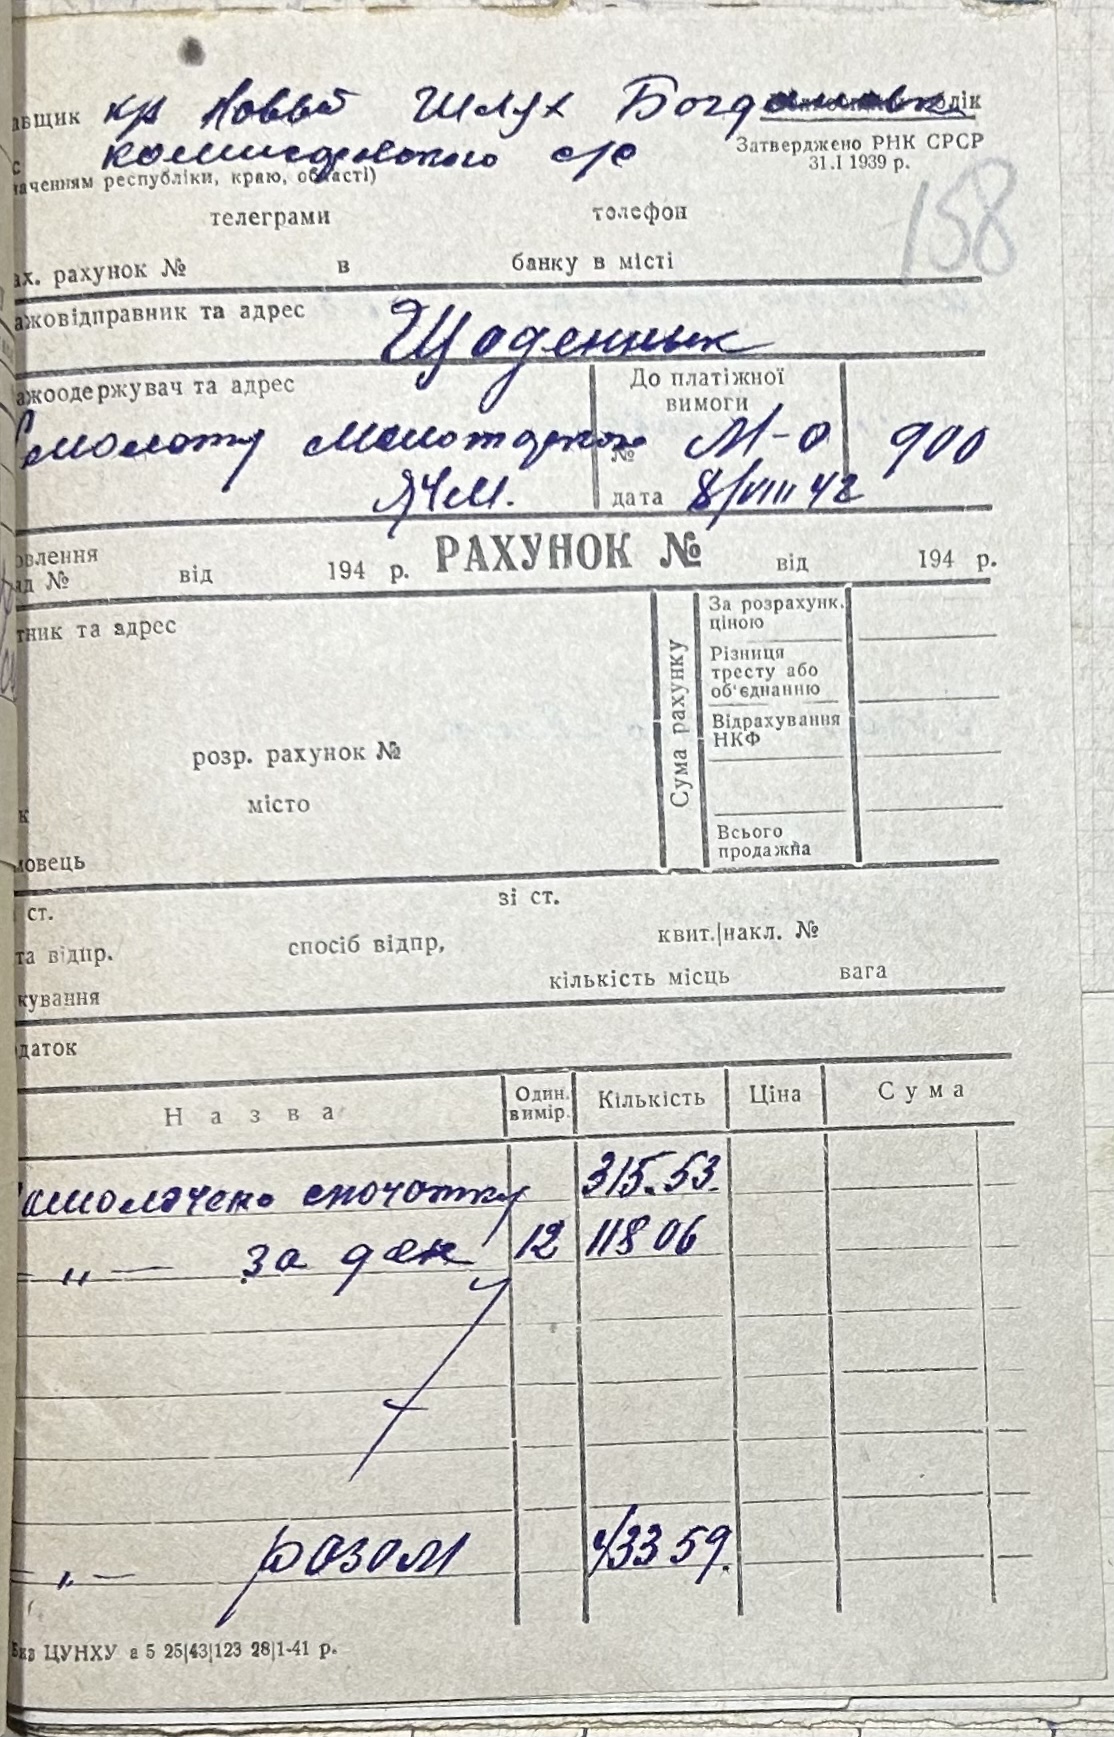 авщик кр Новый Шлух Богдановк
с комисаровского с/с
аченням республіки, краю, області)
Затверджено РНК СРСР
31.I 1939 р.
158
телеграми толефон
ах. рахунок № в банку в місті
ажовідправник та адрес Щоденнык
ажоодержувач та адрес
До платіжної
вимоги
молоту молотаркою № М-О 900
ЯЧМ. дата 8/VIII 42
овлення
ад № від 194 р. РАХУНОК № від 194 р.
тник та адрес
Сума рахунку
За розрахунк.
ціною
Різниця
тресту або
об'єднанню
Відрахування
НКФ
розр. рахунок №
місто
к
Всього
продажна
мовець
ст. зі ст.
та відпр. спосіб відпр, квит.|накл. №
кування кількість місць вага
даток
Назва Один. вимір. Кількість Ціна Сума
амолачено спочатку 315.53.
— „ — за ден 12 118 06
— „ — розом 433 59.
ЦУНХУ а 5 25|43|123 28|1-41 р.